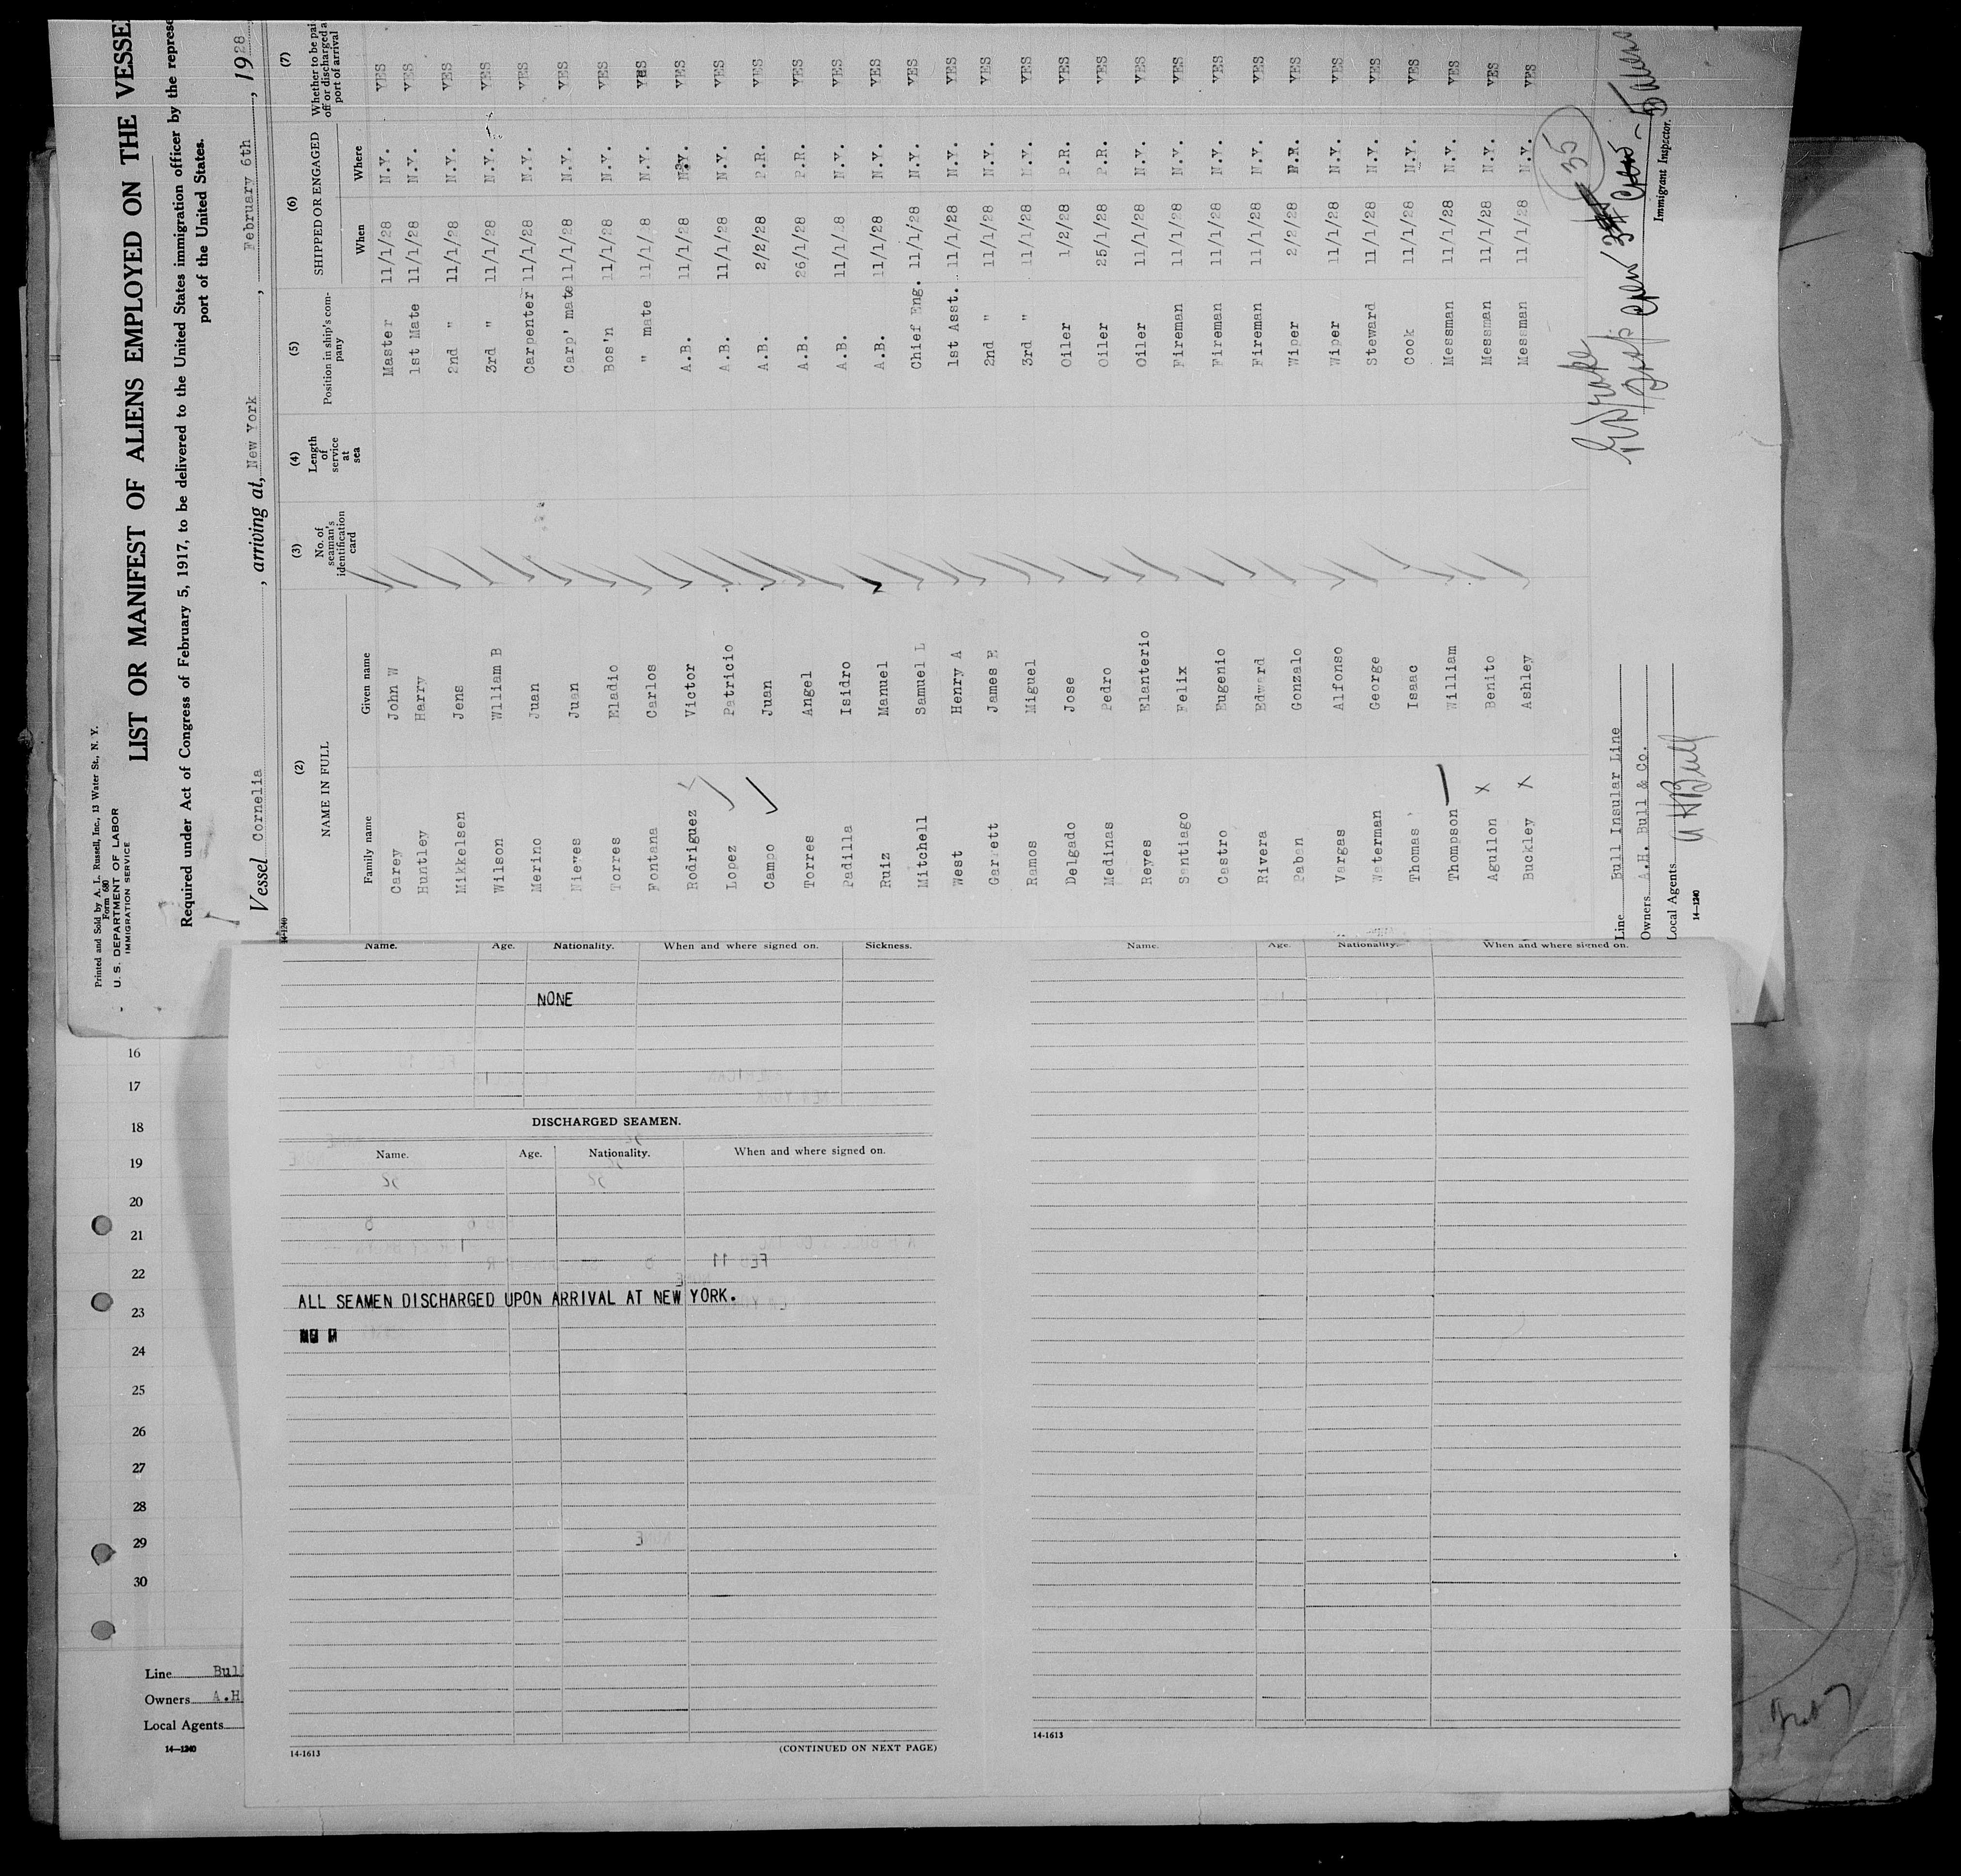 Printed and Sold by A. L. Russell, Inc., 13 Water St., N. Y.
Form 680
U. S. DEPARTMENT OF LABOR
IMMIGRATION SERVICE
LIST OR MANIFEST OF ALIENS EMPLOYED ON THE VESSE
Required under Act of Congress of February 5, 1917, to be delivered to the United States immigration officer by the represe
port of the United States.
Vessel Cornelia, arriving at, New York, February 6th, 1928
14-1240
(2) (3) (4) (5) (6) (7)
NAME IN FULL No. of seaman's identification card Length of service at sea Position in ship's company SHIPPED OR ENGAGED Whether to be pai off or discharged a port of arrival
Family name Given name When Where
Carey John W Master 11/1/28 N.Y. YES
Huntley Harry 1st Mate 11/1/28 N.Y. YES
Mikkelsen Jens 2nd " 11/1/28 N.Y. YES
Wilson Wlliam B 3rd " 11/1/28 N.Y. YES
Merino Juan Carpenter 11/1/28 N.Y. YES
Nieves Juan Carp' mate 11/1/28 N.Y. YES
Torres Eladio Bos'n 11/1/28 N.Y. YES
Fontana Carlos " mate 11/1/28 N.Y. YES
Rodriguez Victor A.B. 11/1/28 N.Y. YES
Lopez Patricio A.B. 11/1/28 N.Y. YES
Campo Juan A.B. 2/2/28 P.R. YES
Torres Angel A.B. 26/1/28 P.R. YES
Padilla Isidro A.B. 11/1/28 N.Y. YES
Ruiz Manuel A.B. 11/1/28 N.Y. YES
Mitchell Samuel L Chief Eng. 11/1/28 N.Y. YES
West Henry A 1st Asst. 11/1/28 N.Y. YES
Garrett James E 2nd " 11/1/28 N.Y. YES
Ramos Miguel 3rd " 11/1/28 N.Y. YES
Delgado Jose Oiler 1/2/28 P.R. YES
Medinas Pedro Oiler 25/1/28 P.R. YES
Reyes Elanterio Oiler 11/1/28 N.Y. YES
Santiago Felix Fireman 11/1/28 N.Y. YES
Castro Eugenio Fireman 11/1/28 N.Y. YES
Rivera Edward Fireman 11/1/28 N.Y. YES
Paban Gonzalo Wiper 2/2/28 P.R. YES
Vargas Alfonso Wiper 11/1/28 N.Y. YES
Waterman George Steward 11/1/28 N.Y. YES
Thomas Isaac Cook 11/1/28 N.Y. YES
Thompson William Messman 11/1/28 N.Y. YES
Aguilon Benito Messman 11/1/28 N.Y. YES
Buckley Ashley Messman 11/1/28 N.Y. YES
35
Line Bull Insular Line
Owners A.H. Bull & Co.
Local Agents A H Bull
Immigrant Inspector.
14-1240
Name. Age. Nationality. When and where signed on. Sickness.
NONE
DISCHARGED SEAMEN.
Name. Age. Nationality. When and where signed on.
ALL SEAMEN DISCHARGED UPON ARRIVAL AT NEW YORK.
14-1613
(CONTINUED ON NEXT PAGE)
Name. Age. Nationality. When and where signed on.
14-1613
16
17
18
19
20
21
22
23
24
25
26
27
28
29
30
Line Bul
Owners A.H
Local Agents
14-1240